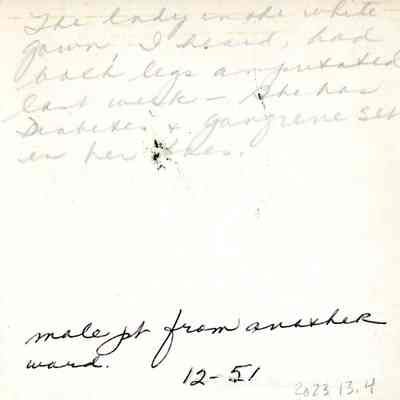 The lady in the white
gown, I heard, had
both legs amputated
last week – She has
Diabetes & gangrene set
in her toes.
male pt from another
ward.
12-51
2023.13.4